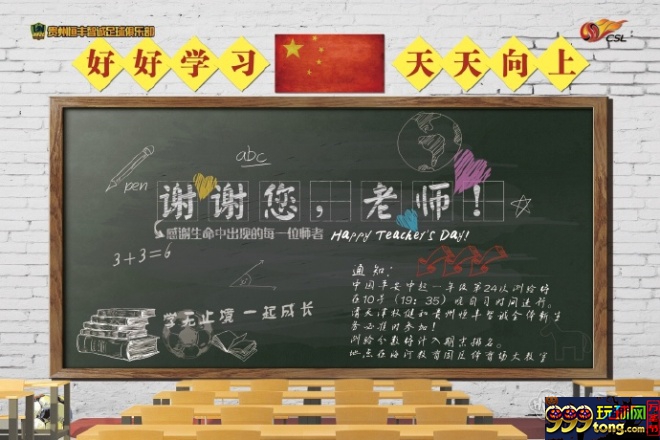 贵州恒丰智诚足球俱乐部
CSL
好好学习
天天向上
abc
pen
谢谢您，老师！
感谢生命中出现的每一位师者 Happy Teacher's Day!
3+3=6
学无止境 一起成长
通知：
中国平安中超一年级第24次测验将
在10号（19：35）晚自习时间进行。
请天津权健和贵州恒丰智诚全体新生
务必准时参加！
测验分数将计入期末排名。
地点在海河教育园区体育场大教室
999玩球网
999tong.com